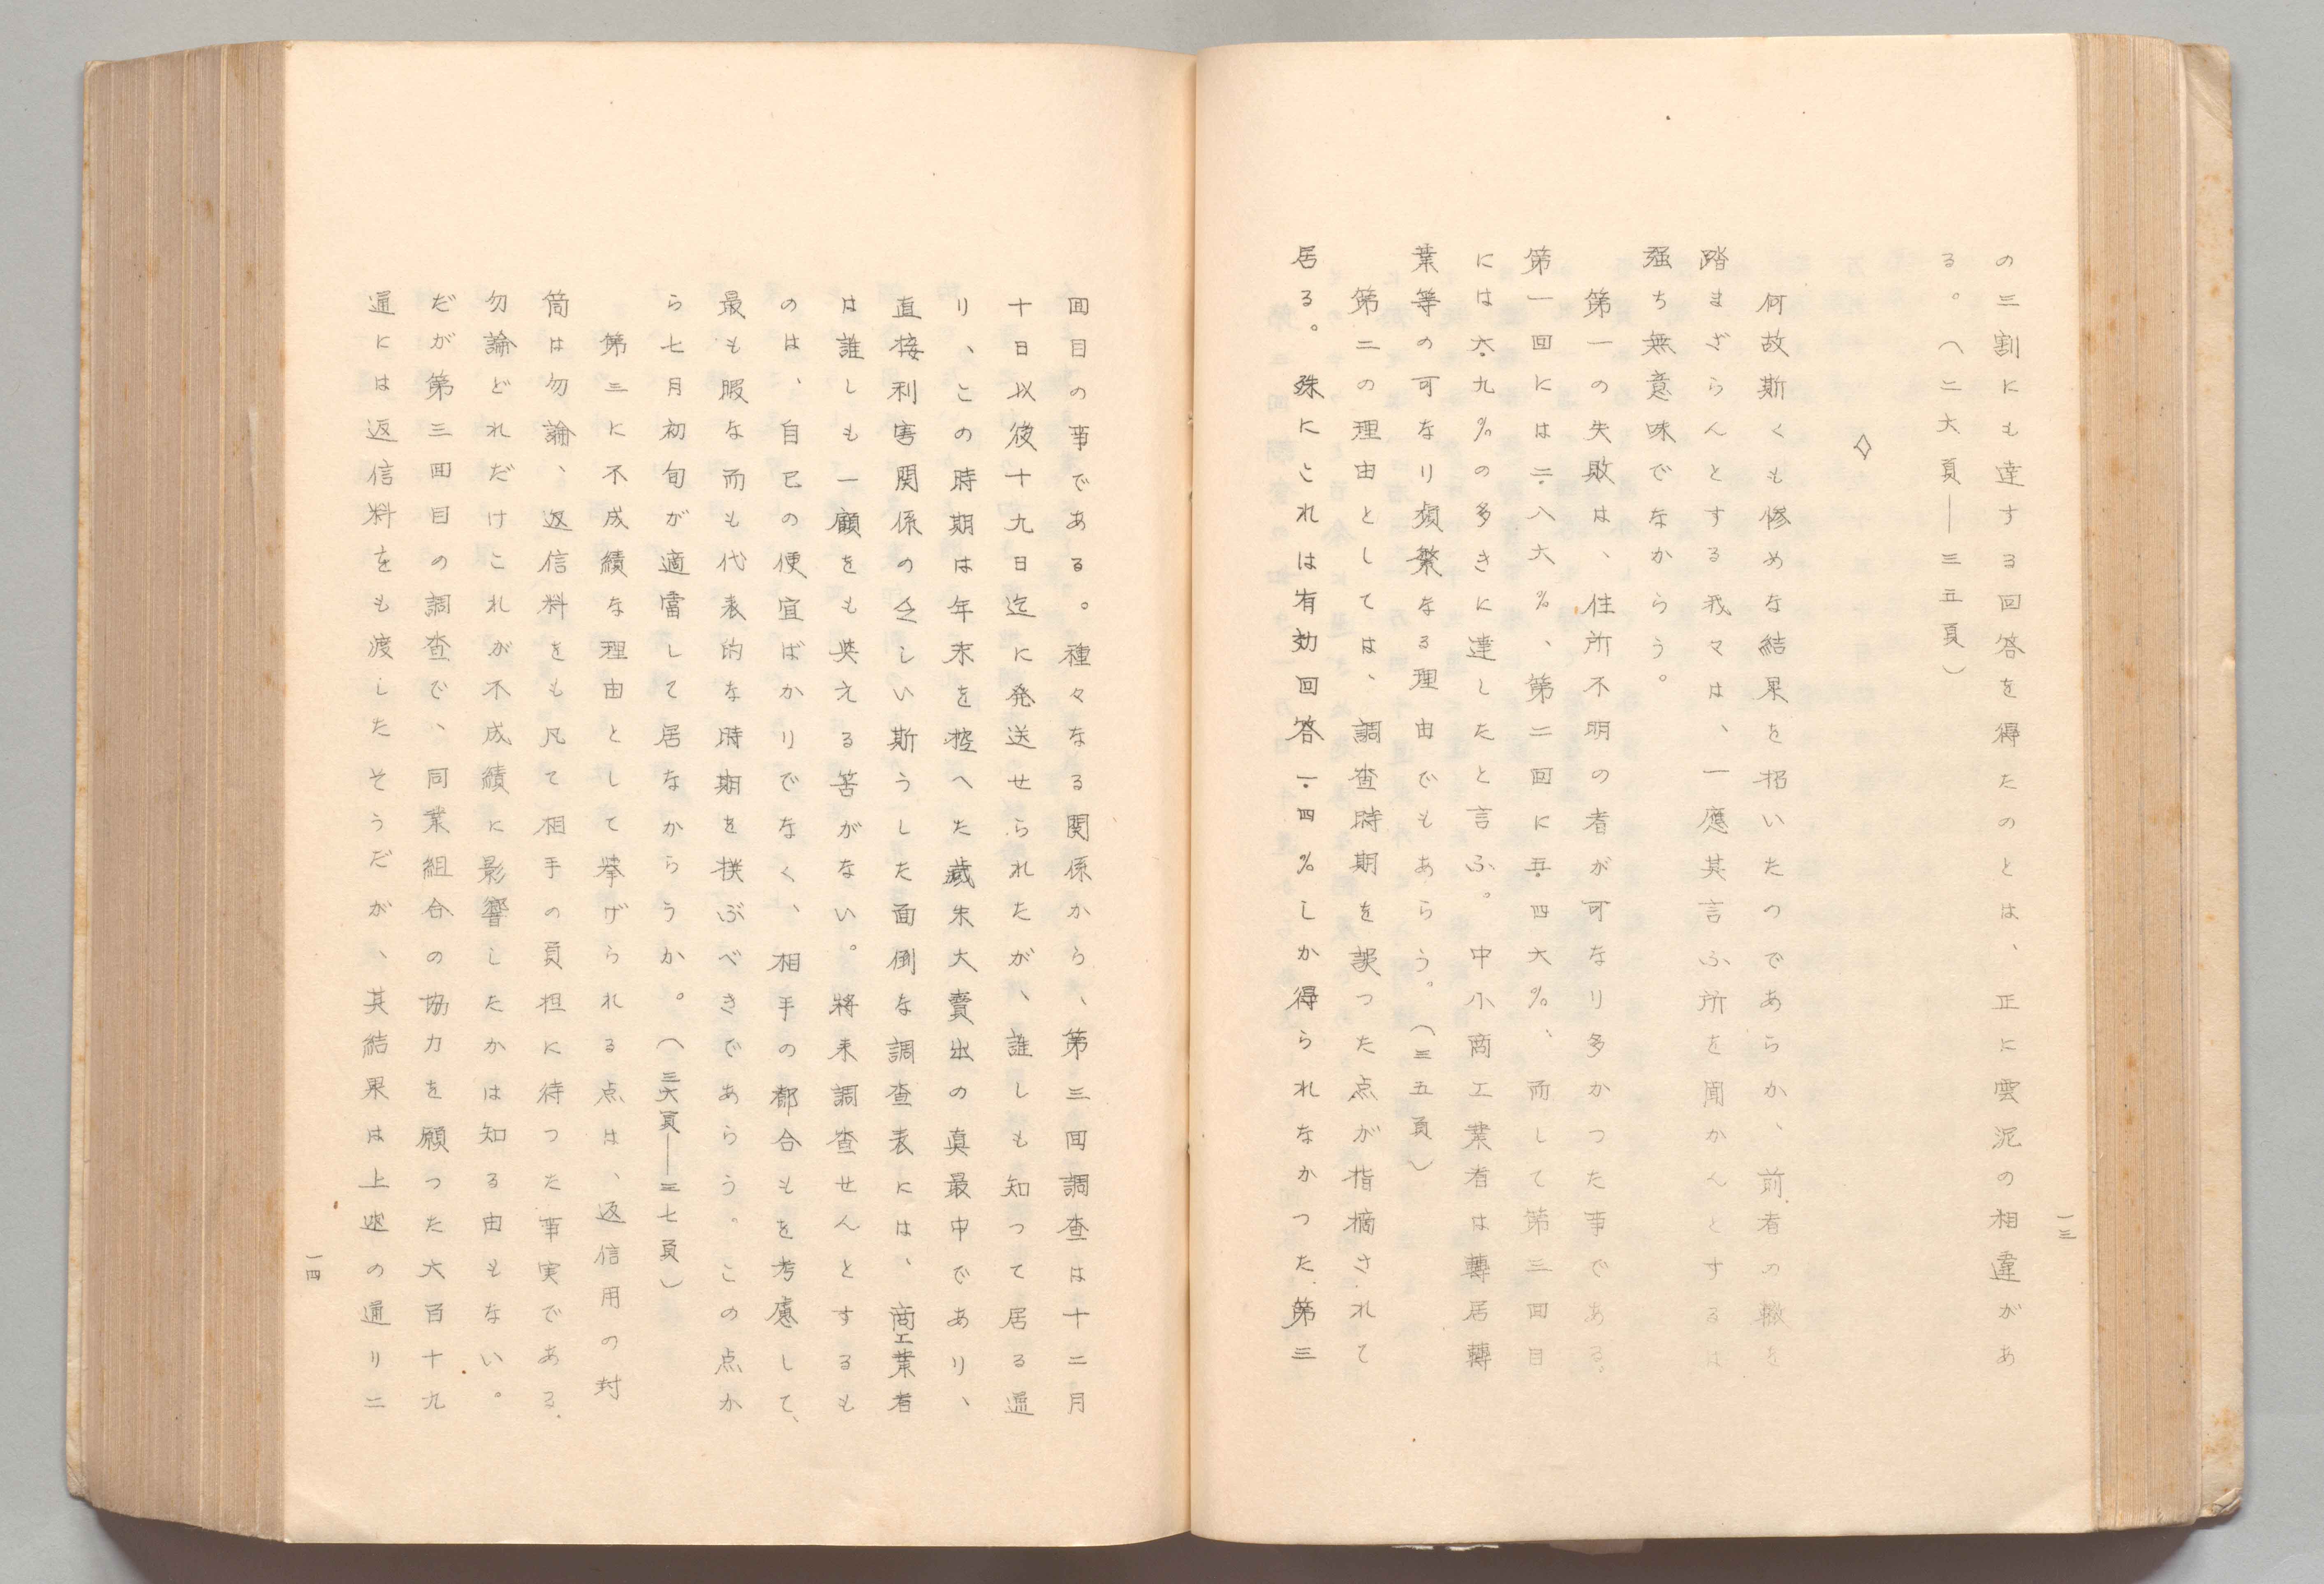 の三割にも達する回答を得たのとは、正に雲泥の相違があ
る。（二六頁―三五頁）
◇
何故斯くも惨めな結果を招いたつであらか、前者の轍を
踏まざらんとする我々は、一應其言ふ所を聞かんとするは
强ち無意味でなからう。
第一の失敗は、住所不明の者が可なり多かつた事である。
第一回には二・八六％、第二回に五・四六％、而して第三回目
には六・九％の多きに達したと言ふ。中小商工業者は轉居轉
業等の可なり頻繁なる理由でもあらう。（三五頁）
第二の理由としては、調査時期を誤つた点が指摘されて
居る。殊にこれは有効回答一・四％しか得られなかつた第三
一三
回目の事である。種々なる関係から、第三回調査は十二月
十日以後十九日迄に発送せられたが、誰しも知つて居る通
り、この時期は年末を控へた歳末大賣出の真最中であり、
直接利害関係の乏しい斯うした面倒な調査表には、商工業者
は誰しも一顧をも與える筈がない。將来調査せんとするも
のは、自己の便宜ばかりでなく、相手の都合もを考慮して、
最も暇な而も代表的な時期を撰ぶべきであらう。この点か
ら七月初旬が適當して居なからうか。（三六頁―三七頁）
第三に不成績な理由として挙げられる点は、返信用の封
筒は勿論、返信料をも凡て相手の負担に待つた事実である。
勿論どれだけこれが不成績に影響したかは知る由もない。
だが第三回目の調査で、同業組合の協力を願つた六百十九
通には返信料をも渡したそうだが、其結果は上述の通り二
一四